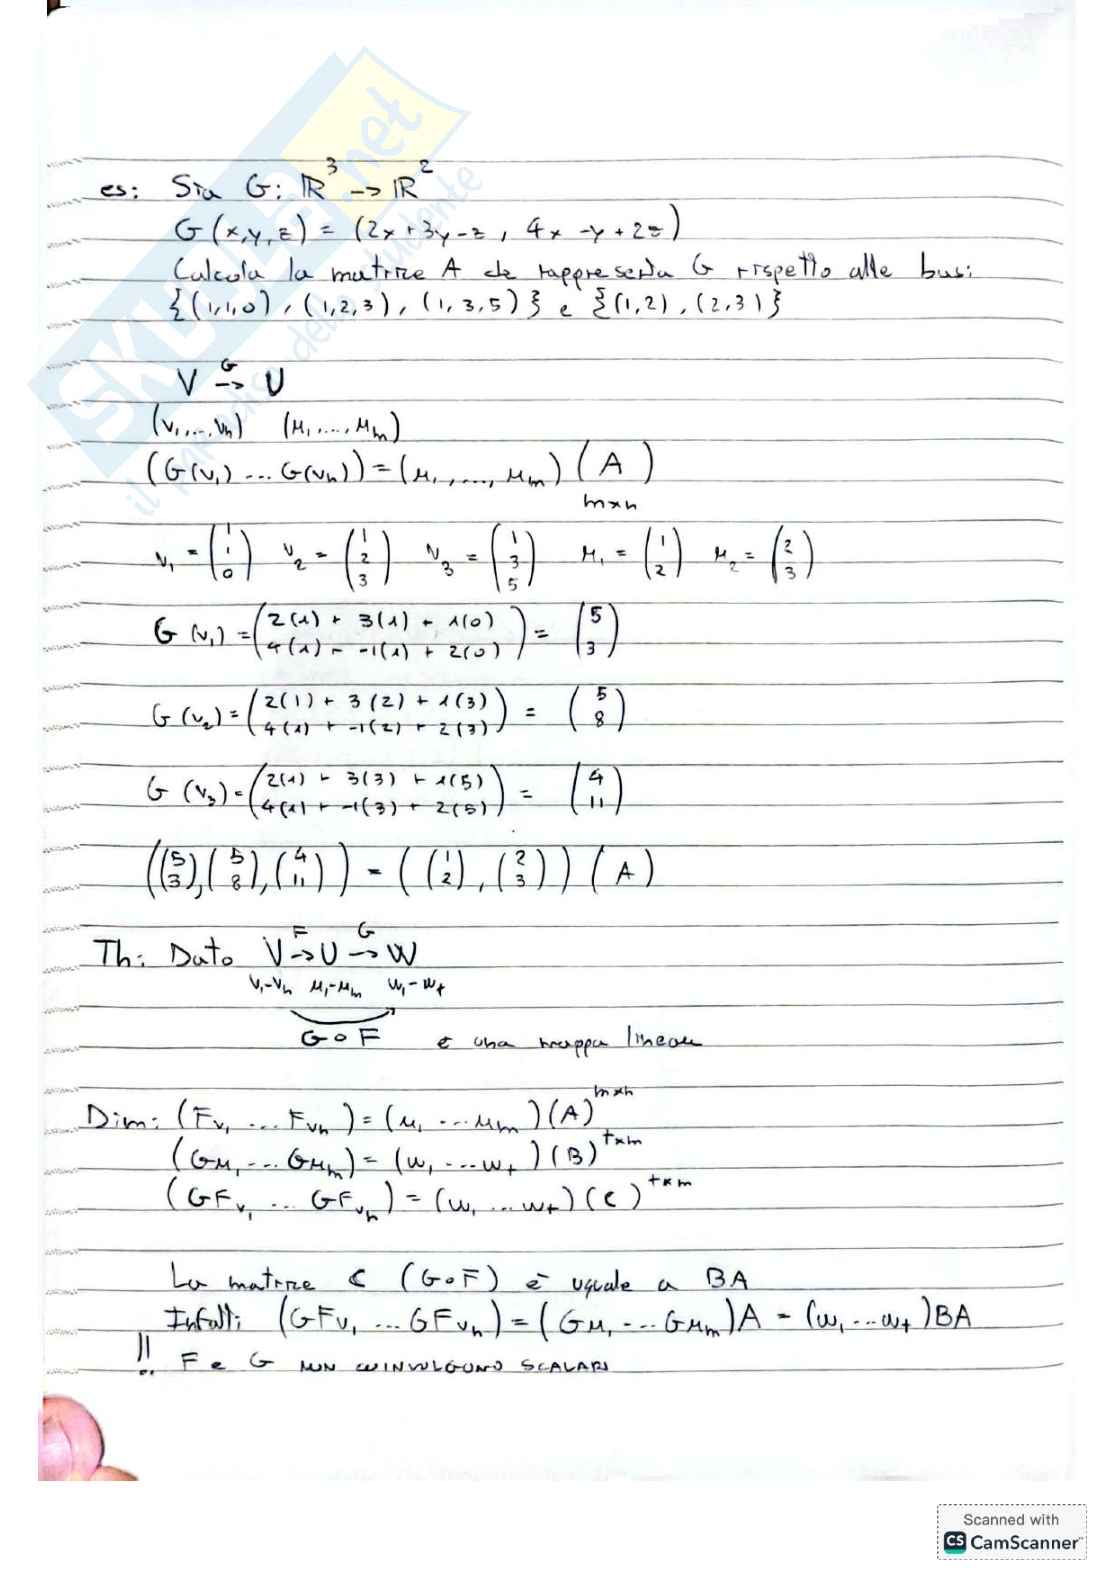 es: Sia G: ℝ³ -> ℝ²
G(x,y,z) = (2x+3y-z , 4x -y +2z)
Calcola la matrice A che rappresenta G rispetto alle basi
{(1,1,0) , (1,2,3) , (1,3,5)} e {(1,2) , (2,3)}
V -G-> U
(v₁,...,vₙ) (μ₁,...,μₘ)
(G(v₁) ... G(vₙ)) = (μ₁,...,μₘ) (A) m×n
v₁ = (1 1 0) v₂ = (1 2 3) v₃ = (1 3 5) μ₁ = (1 2) μ₂ = (2 3)
G(v₁) = (2(1) + 3(1) + 1(0)
4(1) - -1(1) + 2(0)) = (5 3)
G(v₂) = (2(1) + 3(2) + 1(3)
4(1) + -1(2) + 2(3)) = (5 8)
G(v₃) = (2(1) + 3(3) + 1(5)
4(1) + -1(3) + 2(5)) = (4 11)
((5 3),(5 8),(4 11)) = ((1 2),(2 3)) (A)
Th: Dato V -F-> U -G-> W
v₁-vₙ μ₁-μₘ w₁-wₜ
G∘F è una mappa lineare
Dim: (Fv₁ ... Fvₙ) = (μ₁ ... μₘ)(A)ᵐˣⁿ
(Gμ₁ ... Gμₘ) = (w₁ ... wₜ)(B)ᵗˣᵐ
(GFv₁ ... GFvₙ) = (w₁ ... wₜ)(C)ᵗˣᵐ
La matrice C (G∘F) è uguale a BA
Infatti (GFv₁ ... GFvₙ) = (Gμ₁ ... Gμₘ)A = (w₁ ... wₜ)BA
!! F e G NON COINVOLGONO SCALARI
SKUOLA.net
il paradiso dello studente
Scanned with
CS CamScanner